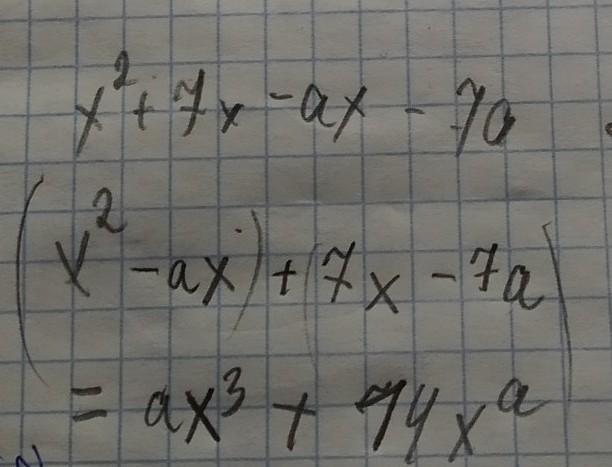 x² + 7x - ax - 7a
(x² - ax) + (7x - 7a)
= ax³ + 14x^a